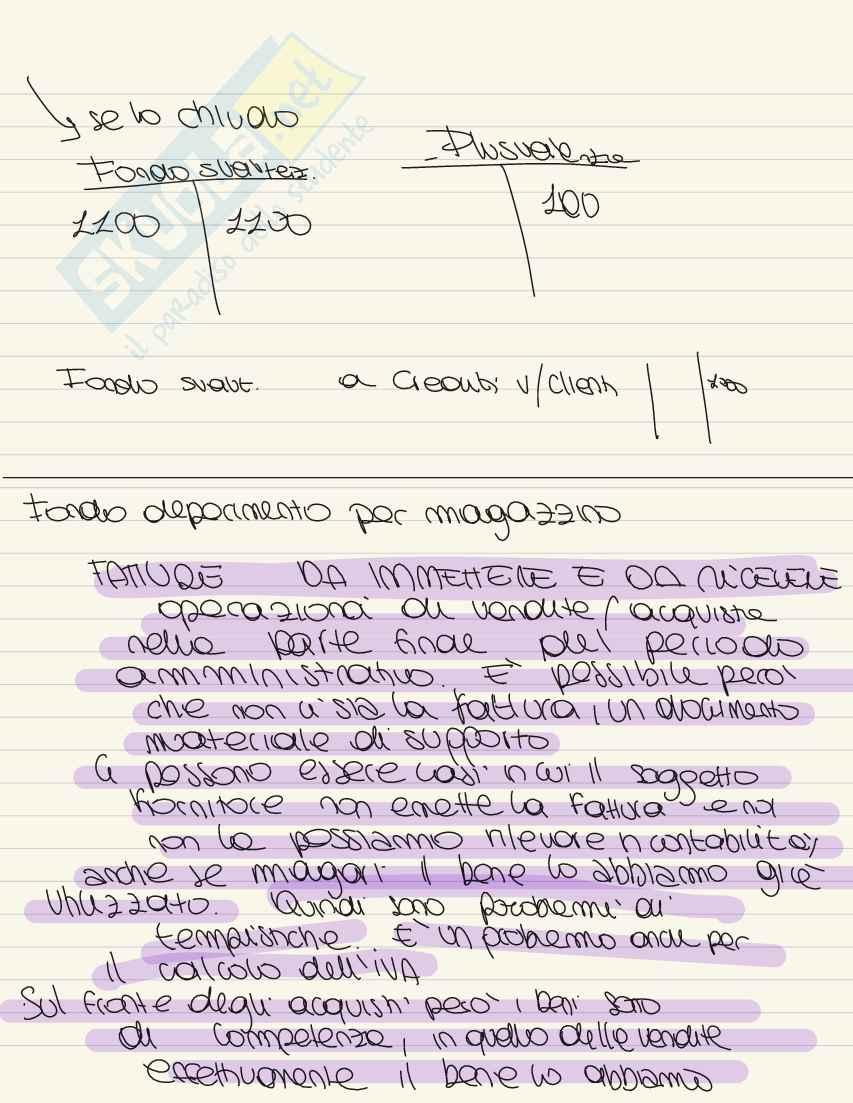 se lo chiudo
Fondo svalutaz.
Plusvalenze
1100 1100
100
Fondo svalut. a Crediti v/clienti
Fondo deperimento per magazzino
FATTURE DA IMMETTERE E DA RICEVERE
operazioni di vendite/acquisti
nella parte finale del periodo
amministrativo. È possibile però
che non ci sia la fattura, un documento
materiale di supporto
Ci possono essere casi in cui il soggetto
fornitore non emette la fattura e noi
non la possiamo rilevare in contabilità,
anche se magari il bene lo abbiamo già
utilizzato. Quindi sono problemi di
tempistiche. È un problema anche per
il calcolo dell'IVA
Sul fronte degli acquisti però i beni sono
di competenza, in quello delle vendite
effettivamente il bene lo abbiamo
SKUOLA.net
il paradiso dello studente